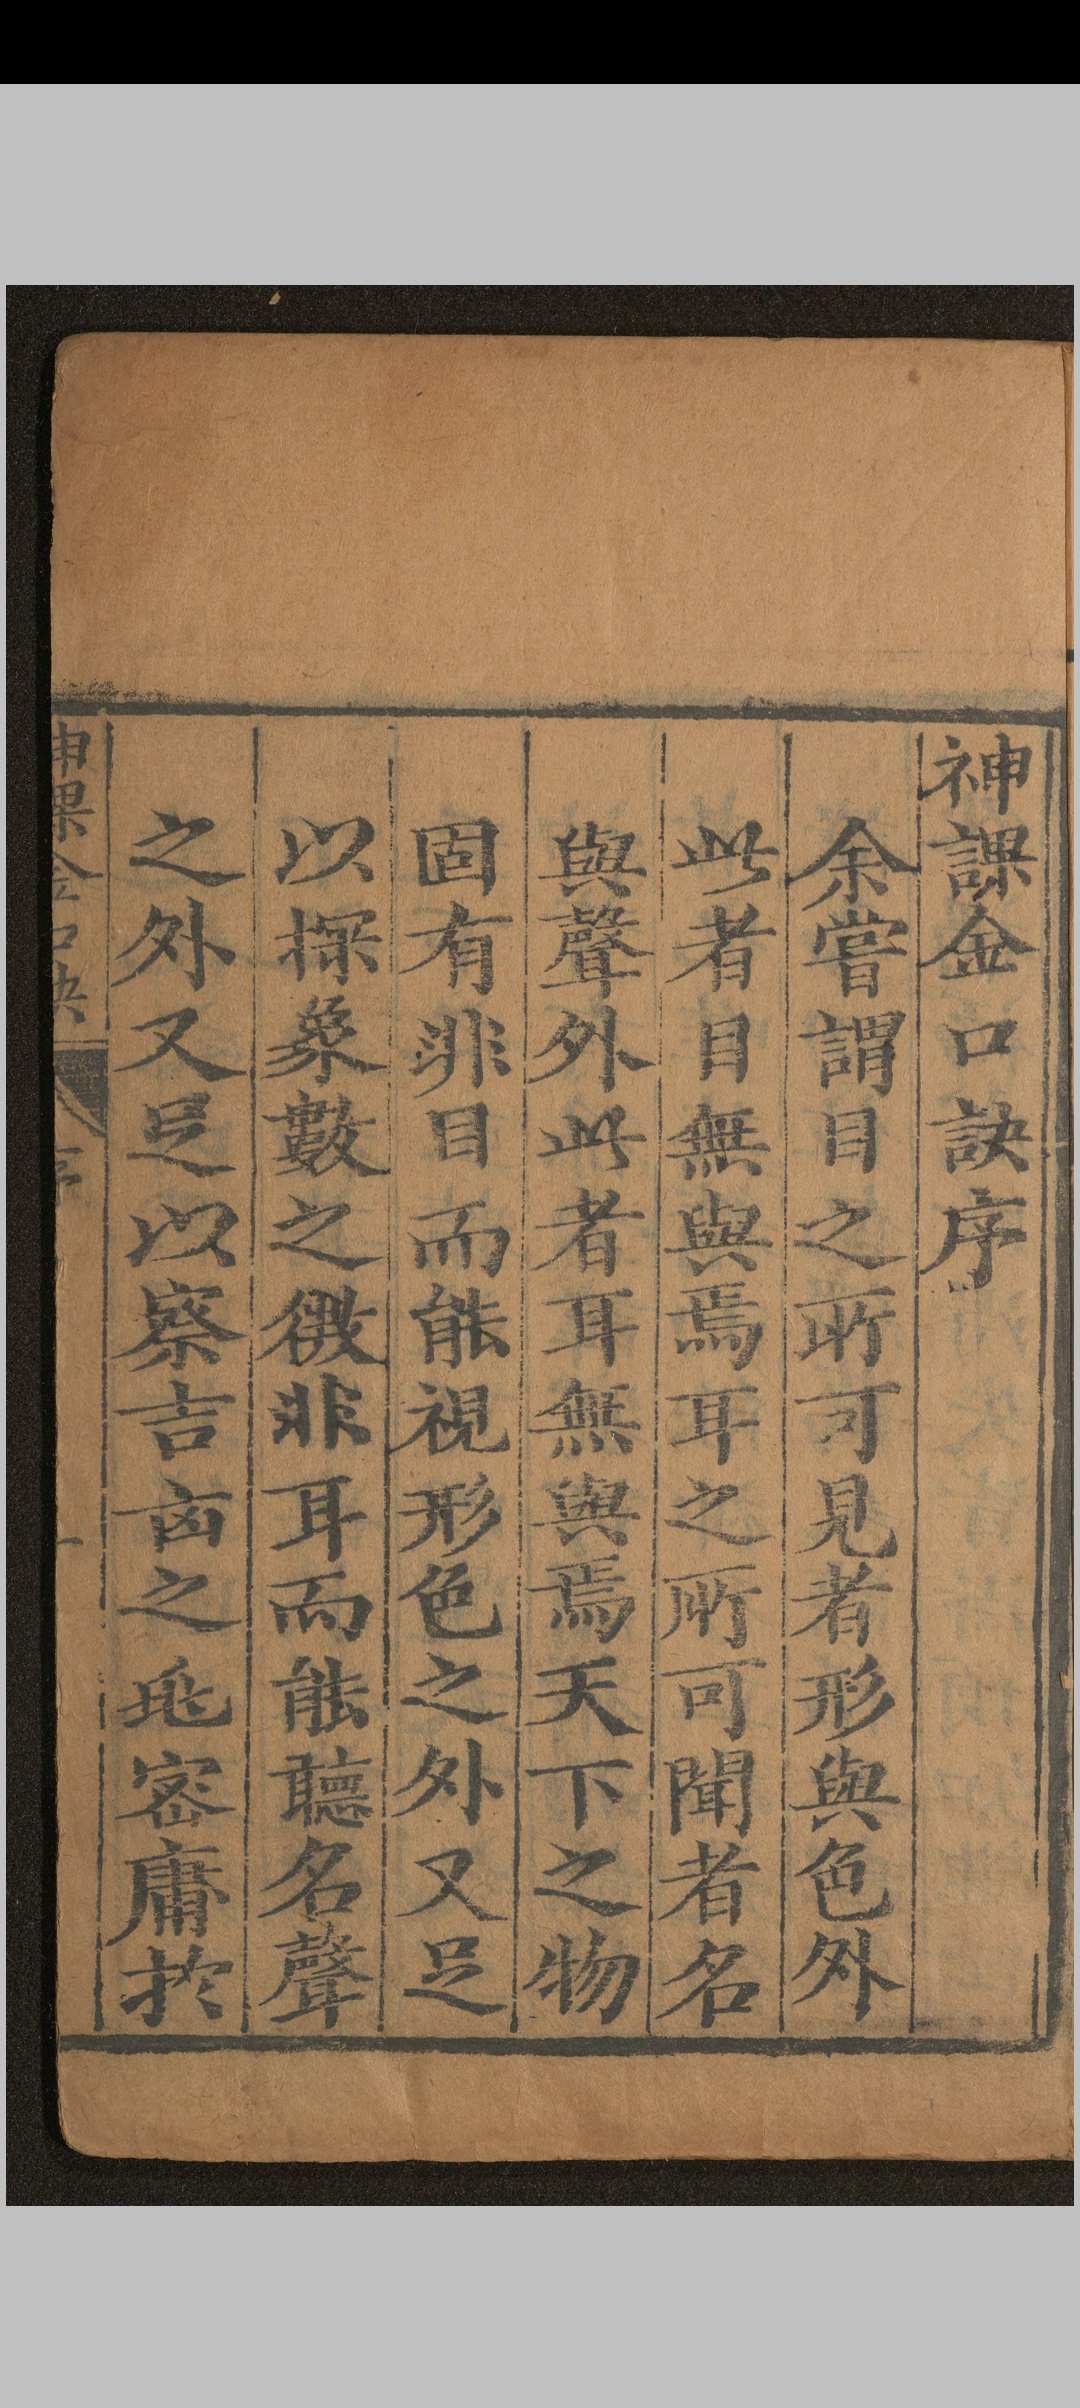 神課金口訣序
余嘗謂目之所可見者形與色外
此者目無與焉耳之所可聞者名
與聲外此者耳無與焉天下之物
固有非目而能視形色之外又足
以探象數之微非耳而能聽名聲
之外又足以察吉凶之兆密庸於
神課金口訣 序 一